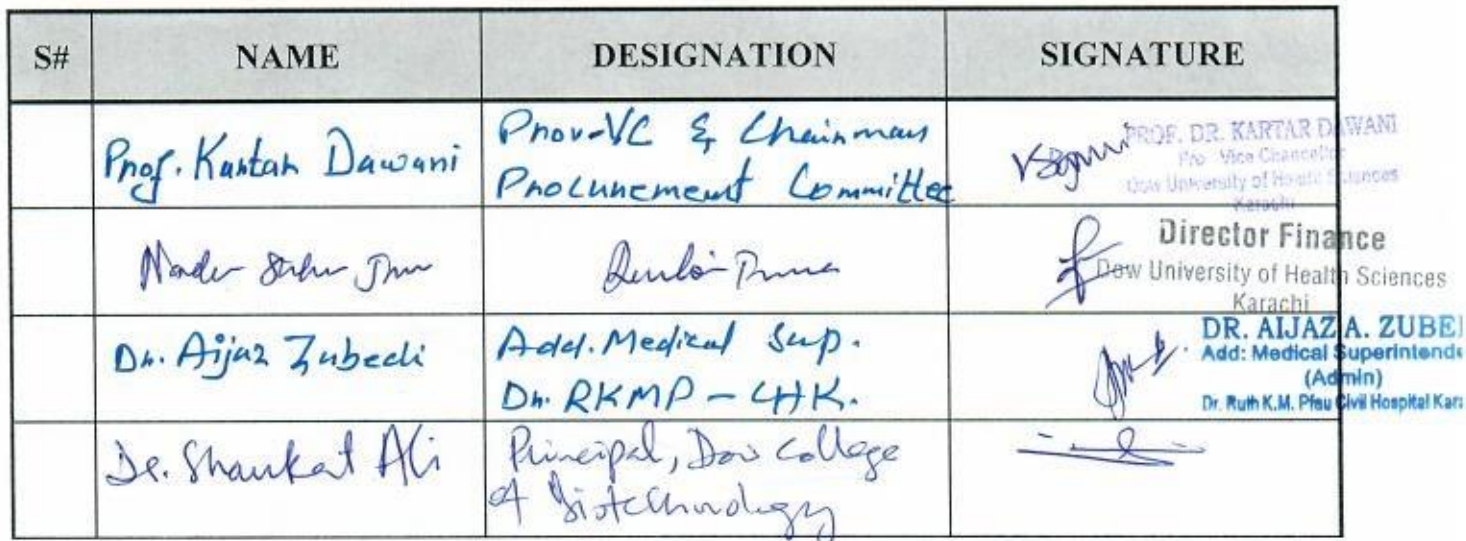 S# NAME DESIGNATION SIGNATURE
Prof. Kartar Dawani
Prov-VC & Chairman
Procurement Committee
PROF. DR. KARTAR DAWANI
Pro Vice Chancellor
Dow University of Health Sciences
Karachi
Director Finance
Dow University of Health Sciences
Karachi
Dr. Aijaz Zubedi
Add. Medical Sup.
Dr. RKMP - CHK.
DR. AIJAZ A. ZUBE
Add: Medical Superintende
(Admin)
Dr. Ruth K.M. Pfau Civil Hospital Kara
Dr. Shaukat Ali
Principal, Dow College
of Biotechnology